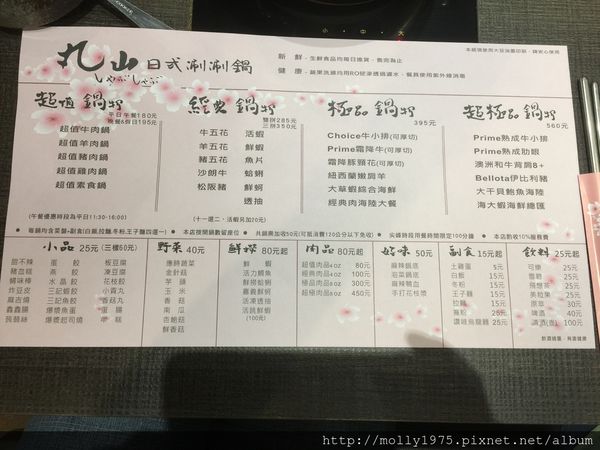 丸山日式涮涮鍋
しゃぶしゃぶ
新 鮮 - 生鮮食品均每日進貨，售完為止
健 康 - 蔬果洗滌均用RO逆滲透過濾水，餐具使用紫外線消毒
本紙張使用大豆油墨印刷，請安心使用
超值鍋物
平日午餐180元
晚餐&假日195元
超值牛肉鍋
超值羊肉鍋
超值豬肉鍋
超值雞肉鍋
超值素食鍋
(午餐優惠時段為平日11:30-16:00)
經典鍋物
雙拼285元
三拼350元
牛五花 活蝦
羊五花 鮮蝦
豬五花 魚片
沙朗牛 蛤蜊
松阪豬 鮮蚵
透抽
(十一選二，活蝦另加20元)
極品鍋物
395元
Choice牛小排(可厚切)
Prime霜降牛(可厚切)
霜降豚頸花(可厚切)
紐西蘭嫩肩羊
大草蝦綜合海鮮
經典肉海陸大餐
超極品鍋物
560元
Prime熟成牛小排
Prime熟成肋眼
澳洲和牛背肩8+
Bellota伊比利豬
大干貝鮑魚海陸
海大蝦海鮮總匯
小品 25元(三樣50元)
甜不辣 蛋餃 板豆腐
豬血糕 燕餃 凍豆腐
蟳味棒 水晶餃 花枝餃
炸豆皮 三記蝦餃 小貢丸
麻吉燒 三記魚餃 香菇丸
鑫鑫腸 爆漿魚蛋 蛋腸
蒟蒻絲 爆漿起司燒 年糕
野菜 40元
應時蔬菜
金針菇
芋頭
玉米
南瓜
杏鮑菇
鮮香菇
鮮撰 80元起
鮮蝦
活力鯛魚
鮮撈蛤蜊
嘉義鮮蚵
活凍透抽
活跳鮮蝦
(100元)
肉品 80元起
超值肉品4oz 80元
經典肉品4oz 100元
極品肉品4oz 280元
超極品肉品 450元
好味 50元
麻辣鍋底
泡菜鍋底
麻辣鴨血
手打花枝漿
副食 15元起
土雞蛋 5元
白飯 15元
冬粉 15元
王子麵 15元
拉麵 15元
寬粉 25元
讚岐烏龍麵 25元
飲料 25元起
可樂 25元
雪碧 25元
飛想茶 25元
美粒果 25元
原萃 30元
啤酒 40元
http://molly1975.pixnet.net/album